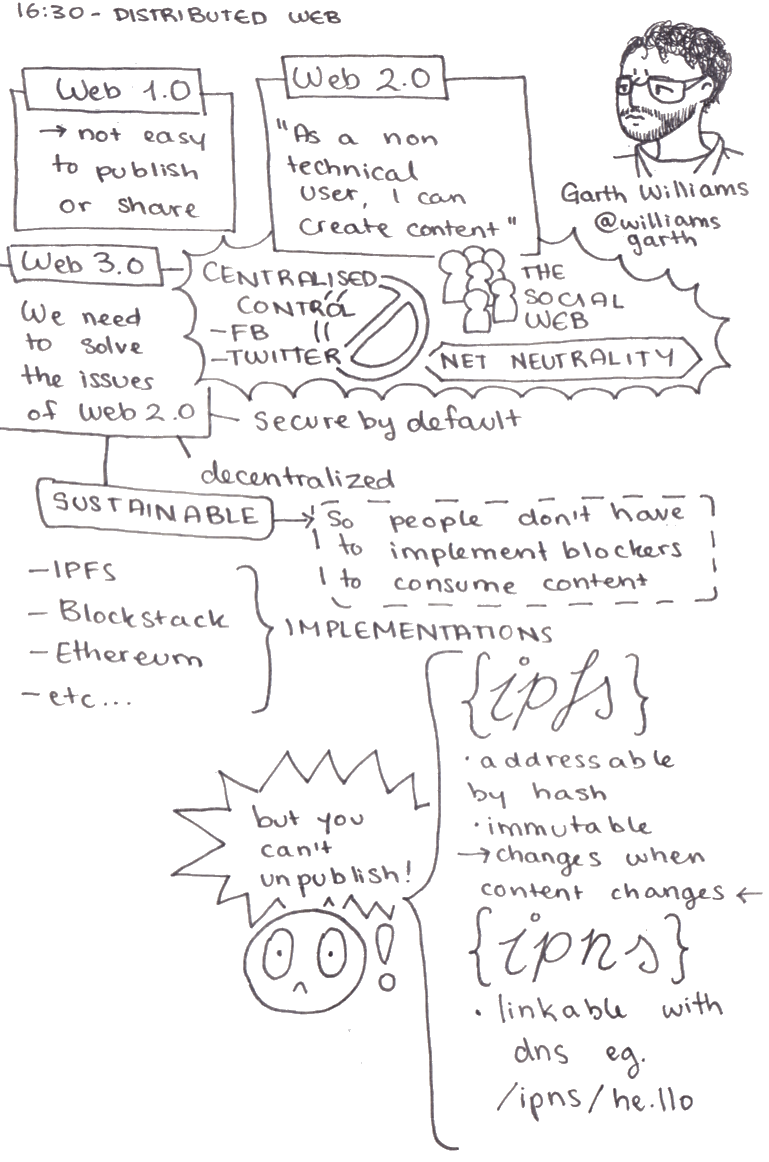 16:30 - DISTRIBUTED WEB
Web 1.0
→ not easy
to publish
or share
Web 2.0
"As a non
technical
user, I can
create content"
Garth Williams
@williams
garth
Web 3.0
We need
to solve
the issues
of Web 2.0
CENTRALISED
CONTROL
- FB
- TWITTER
THE
SOCIAL
WEB
NET NEUTRALITY
secure by default
decentralized
SUSTAINABLE
→ so people don't have
to implement blockers
to consume content
- IPFS
- Blockstack
- Ethereum
- etc...
IMPLEMENTATIONS
{ipfs}
· addressable
by hash
· immutable
→ changes when
content changes ←
but you
can't
unpublish!
!
{ipns}
· linkable with
dns eg.
/ipns/he.llo